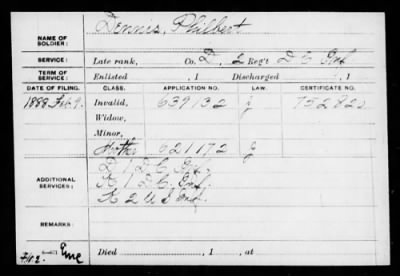 NAME OF SOLDIER: Dennis, Philbert
SERVICE: Late rank, Co. D, 2 Reg't D C Inf.
TERM OF SERVICE: Enlisted , 1 Discharged , 1
DATE OF FILING. CLASS. APPLICATION NO. LAW. CERTIFICATE NO.
1888 Feb 9. Invalid, 639132 J 752820
Widow,
Minor,
Mother 621172 J
ADDITIONAL SERVICES: D 1 D.C. Inf.
K 1 D.C. Inf.
K 2 U S Inf.
REMARKS:
Died , 1 , at